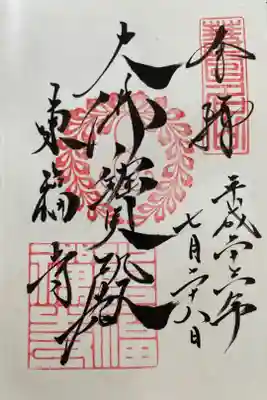 奉拝
平成廿六年
七月二十八日
大佛寳殿
東福寺